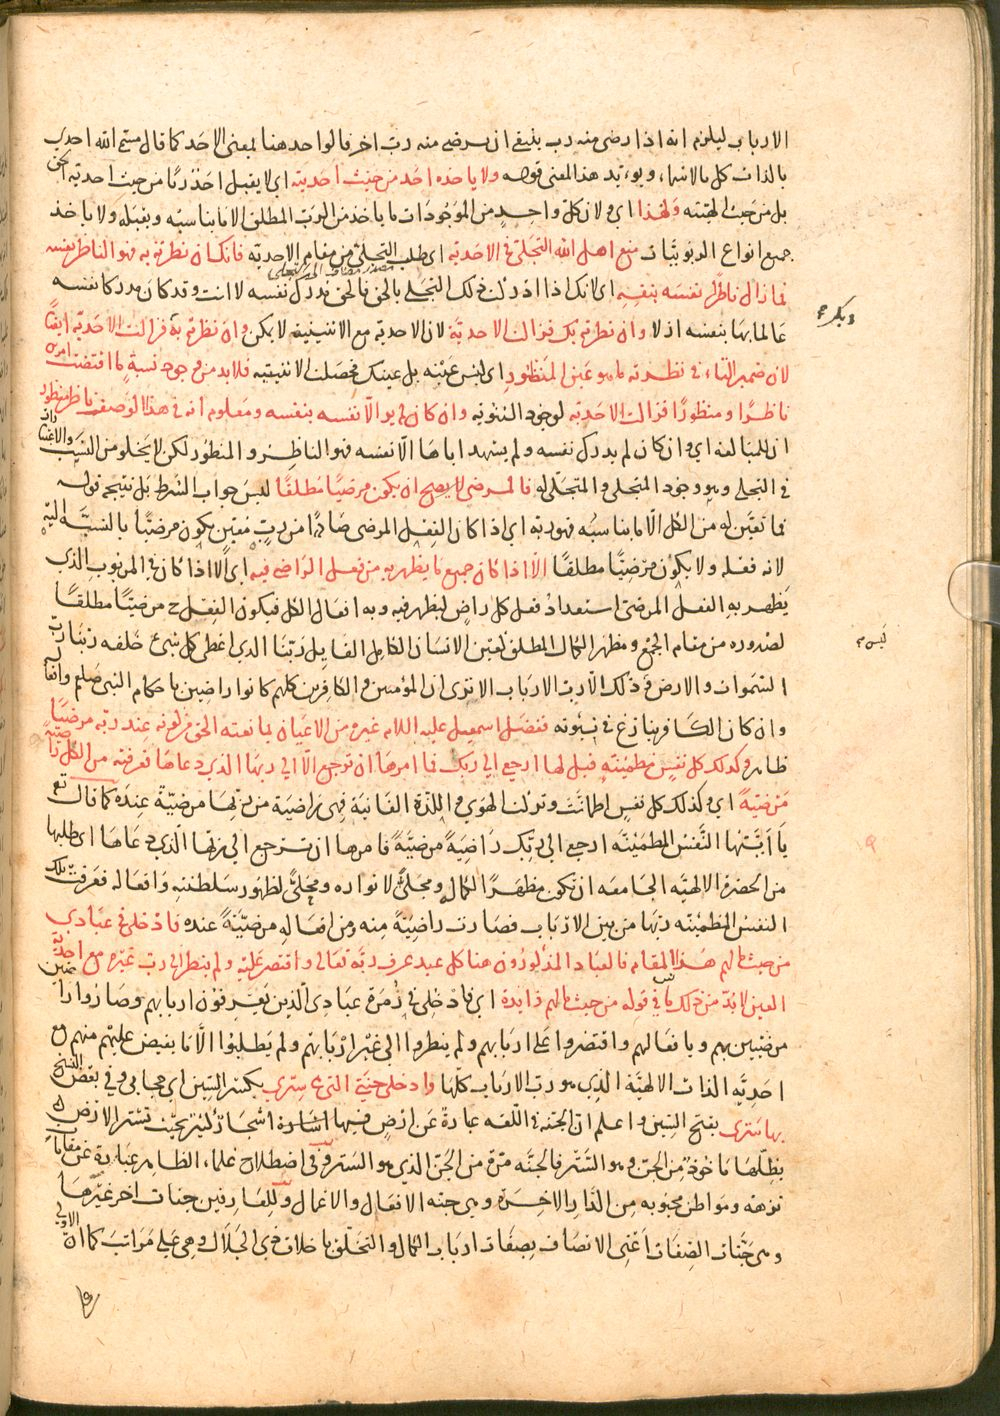 الارباب ليلزم انه اذا رضى منه رب ينبغى ان يرضى منه رب اخر فالواحد هنا بمعنى الاحد كما قال مسمى الله احدى
بالذات كل بالاسماء ويؤيد هذا المعنى قوله ولا ياخذه احد من حيث احديته اى لا يقبل احد ربا من حيث احديته الحق
بل من حيث الهيته ولهذا اى ولان كل واحد من الموجودات ما ياخذ من الرب المطلق الا ما يناسبه ويقبله ولا ياخذ
جميع انواع الربوبيات منع اهل الله التجلى فى الاحدية اى طلب التجلى من مقام الاحدية فانك ان نظرته به فهو الناظر نفسه
فما زال ناظرا نفسه بنفسه اى لانك اذا ادركت ذلك التجلى بالحق فالحق مدرك نفسه لا انت وقد كان مدركا نفسه
عالما بها بنفسه ازلا وان نظرته بك فزالت الاحدية بك لان الاحدية مع الاثنينية لا يمكن وان نظرته به وبك فزالت الاحدية ايضا
لان ضمير التاء فى نظرته ما هو عين المنظور اى ليس عينه بل عينك فحصلت الاثنينية فلا بد من وجود نسبة ما اقتضت امرين
ناظرا ومنظورا فزالت الاحدية لوجود الثنوية وان كان لم ير الا نفسه بنفسه ومعلوم انه فى هذا الوصف ناظر منظور
ان للمبالغة اى وان كان لم يدرك نفسه ولم يشهد اياها الا نفسه فهو الناظر والمنظور لكن لا يخلو من النسب والاعتبارات
فى التجلى وهو وجود المتجلى والمتجلى له فالمرضى لا يصح ان يكون مرضيا مطلقا ليس جواب الشرط بل نتيجة قوله
فما تعين له من الكل الا ما يناسبه فهو ربه اى اذا كان الفعل المرضى صادرا من رب معين يكون مرضيا بالنسبة اليه
لانه فعله ولا يكون مرضيا مطلقا الا اذا كان جميع ما يظهر به من فعل الراضى فيه اى الا اذا كان فى المربوب الذى
يظهر به الفعل المرضى استعداد فعل كل راض ليظهر فيه وبه افعال الكل فيكون الفعل ح مرضيا مطلقا
لصدوره من مقام الجمع ومظهر الكمال المطلق كعين الانسان الكامل القابل ربنا الذى اعطى كل شئ خلقه ربنا رب
السموات والارض وذلك الا رب الارباب الا ترى ان المؤمنين والكافرين كلهم كانوا راضين باحكام النبى صلعم وافعاله
وان كان الكافر ينازع فى نبوته ففضل اسمعيل عليه السلام غيره من الاعيان بما نعته الحق من كونه عند ربه مرضيا
ظاهر وكذلك كل نفس مطمئنة قيل لها ارجعى الى ربك فما امرها ان ترجع الا الى ربها الذى دعاها فعرفته من الكل راضية
مرضية اى وكذلك كل نفس اطمانت وتركت الهوى واللذة الفانية فهى راضية من ربها مرضية عنده كما قال تع
يا ايتها النفس المطمئنة ارجعى الى ربك راضية مرضية فامرها ان ترجع الى ربها الذى دعاها اى طلبها
من الحضرة الالهية الجامعة ان تكون مظهرا لكماله ومجلى لانواره ومحلا لظهور سلطنته وافعاله فعرفت تلك
النفس المطمئنة ربها من بين الارباب فصارت راضية منه ومن افعاله مرضية عنده فادخلى فى عبادى
من حيث ما لهم هذا المقام فالعباد المذكورون هنا كل عبد عرف ربه تعالى واقتصر عليه ولم ينظر الى رب غيره مع احدية
العين لا بد من ذلك ما فى قوله من حيث ما لهم زايدة اى فادخلى فى زمرة عبادى الذين يعرفون اربابهم وصاروا راضين
مرضيين بهم وبافعالهم واقتصروا على اربابهم ولم ينظروا الى غير اربابهم ولم يطلبوا الا ما يفيض عليهم منهم مع
احدية الذات الالهية الذى هو رب الارباب كلها وادخلى جنتى التى هى سترى بكسر السين اى حجابى وفى بعض النسخ
بها سترى بفتح السين واعلم ان الجنة فى اللغة عبارة عن ارض فيها اشجار كثيرة بحيث تستر الارض
بظلها ماخوذ من الجن وهو الستر فالجنة مرة من الجن الذى هو الستر وفى اصطلاح علماء الظاهر عبارة عن مقامات
نزهة ومواطن محبوبة من الدار الاخرة وهى جنة الافعال والاعمال وللعارفين جنات اخر غيرها
وهى جنات الصفات اعنى الاتصاف بصفات ارباب الكمال والتخلق باخلاق ذى الجلال وهى على مراتب كما ان الاولى